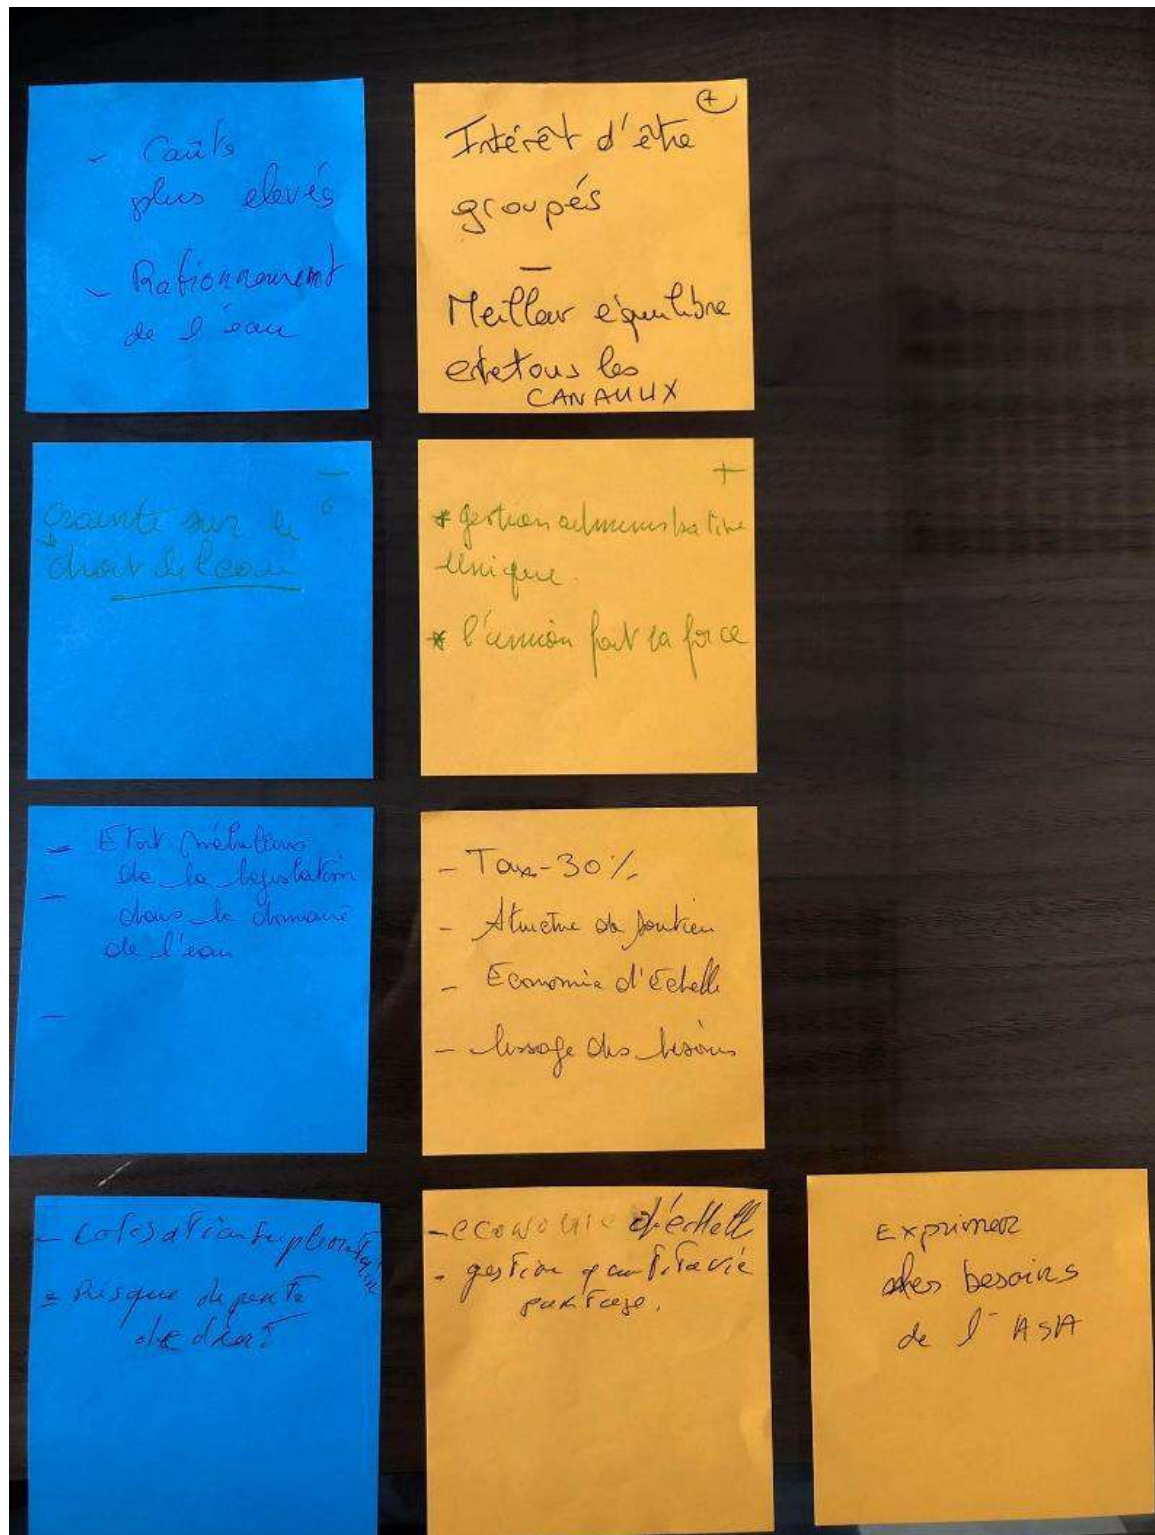 - Coûts
plus elevés
- Rationnement
de l'eau
+
Intérêt d'être
groupés
—
Meilleur équilibre
entre tous les
CANAUUX
—
Crainte sur le
droit de l'eau
+
* gestion administrative
unique.
* l'union fait la force
- Etat
de la legislation
dans le domaine
de l'eau
-
-
- Taxe -30%
- Structure de soutien
- Economie d'échelle
- lissage des besoins
- Cotisation
- Risque de perte
de droit
- economie d'échell
- gestion
partage.
Exprimer
des besoins
de l'ASA